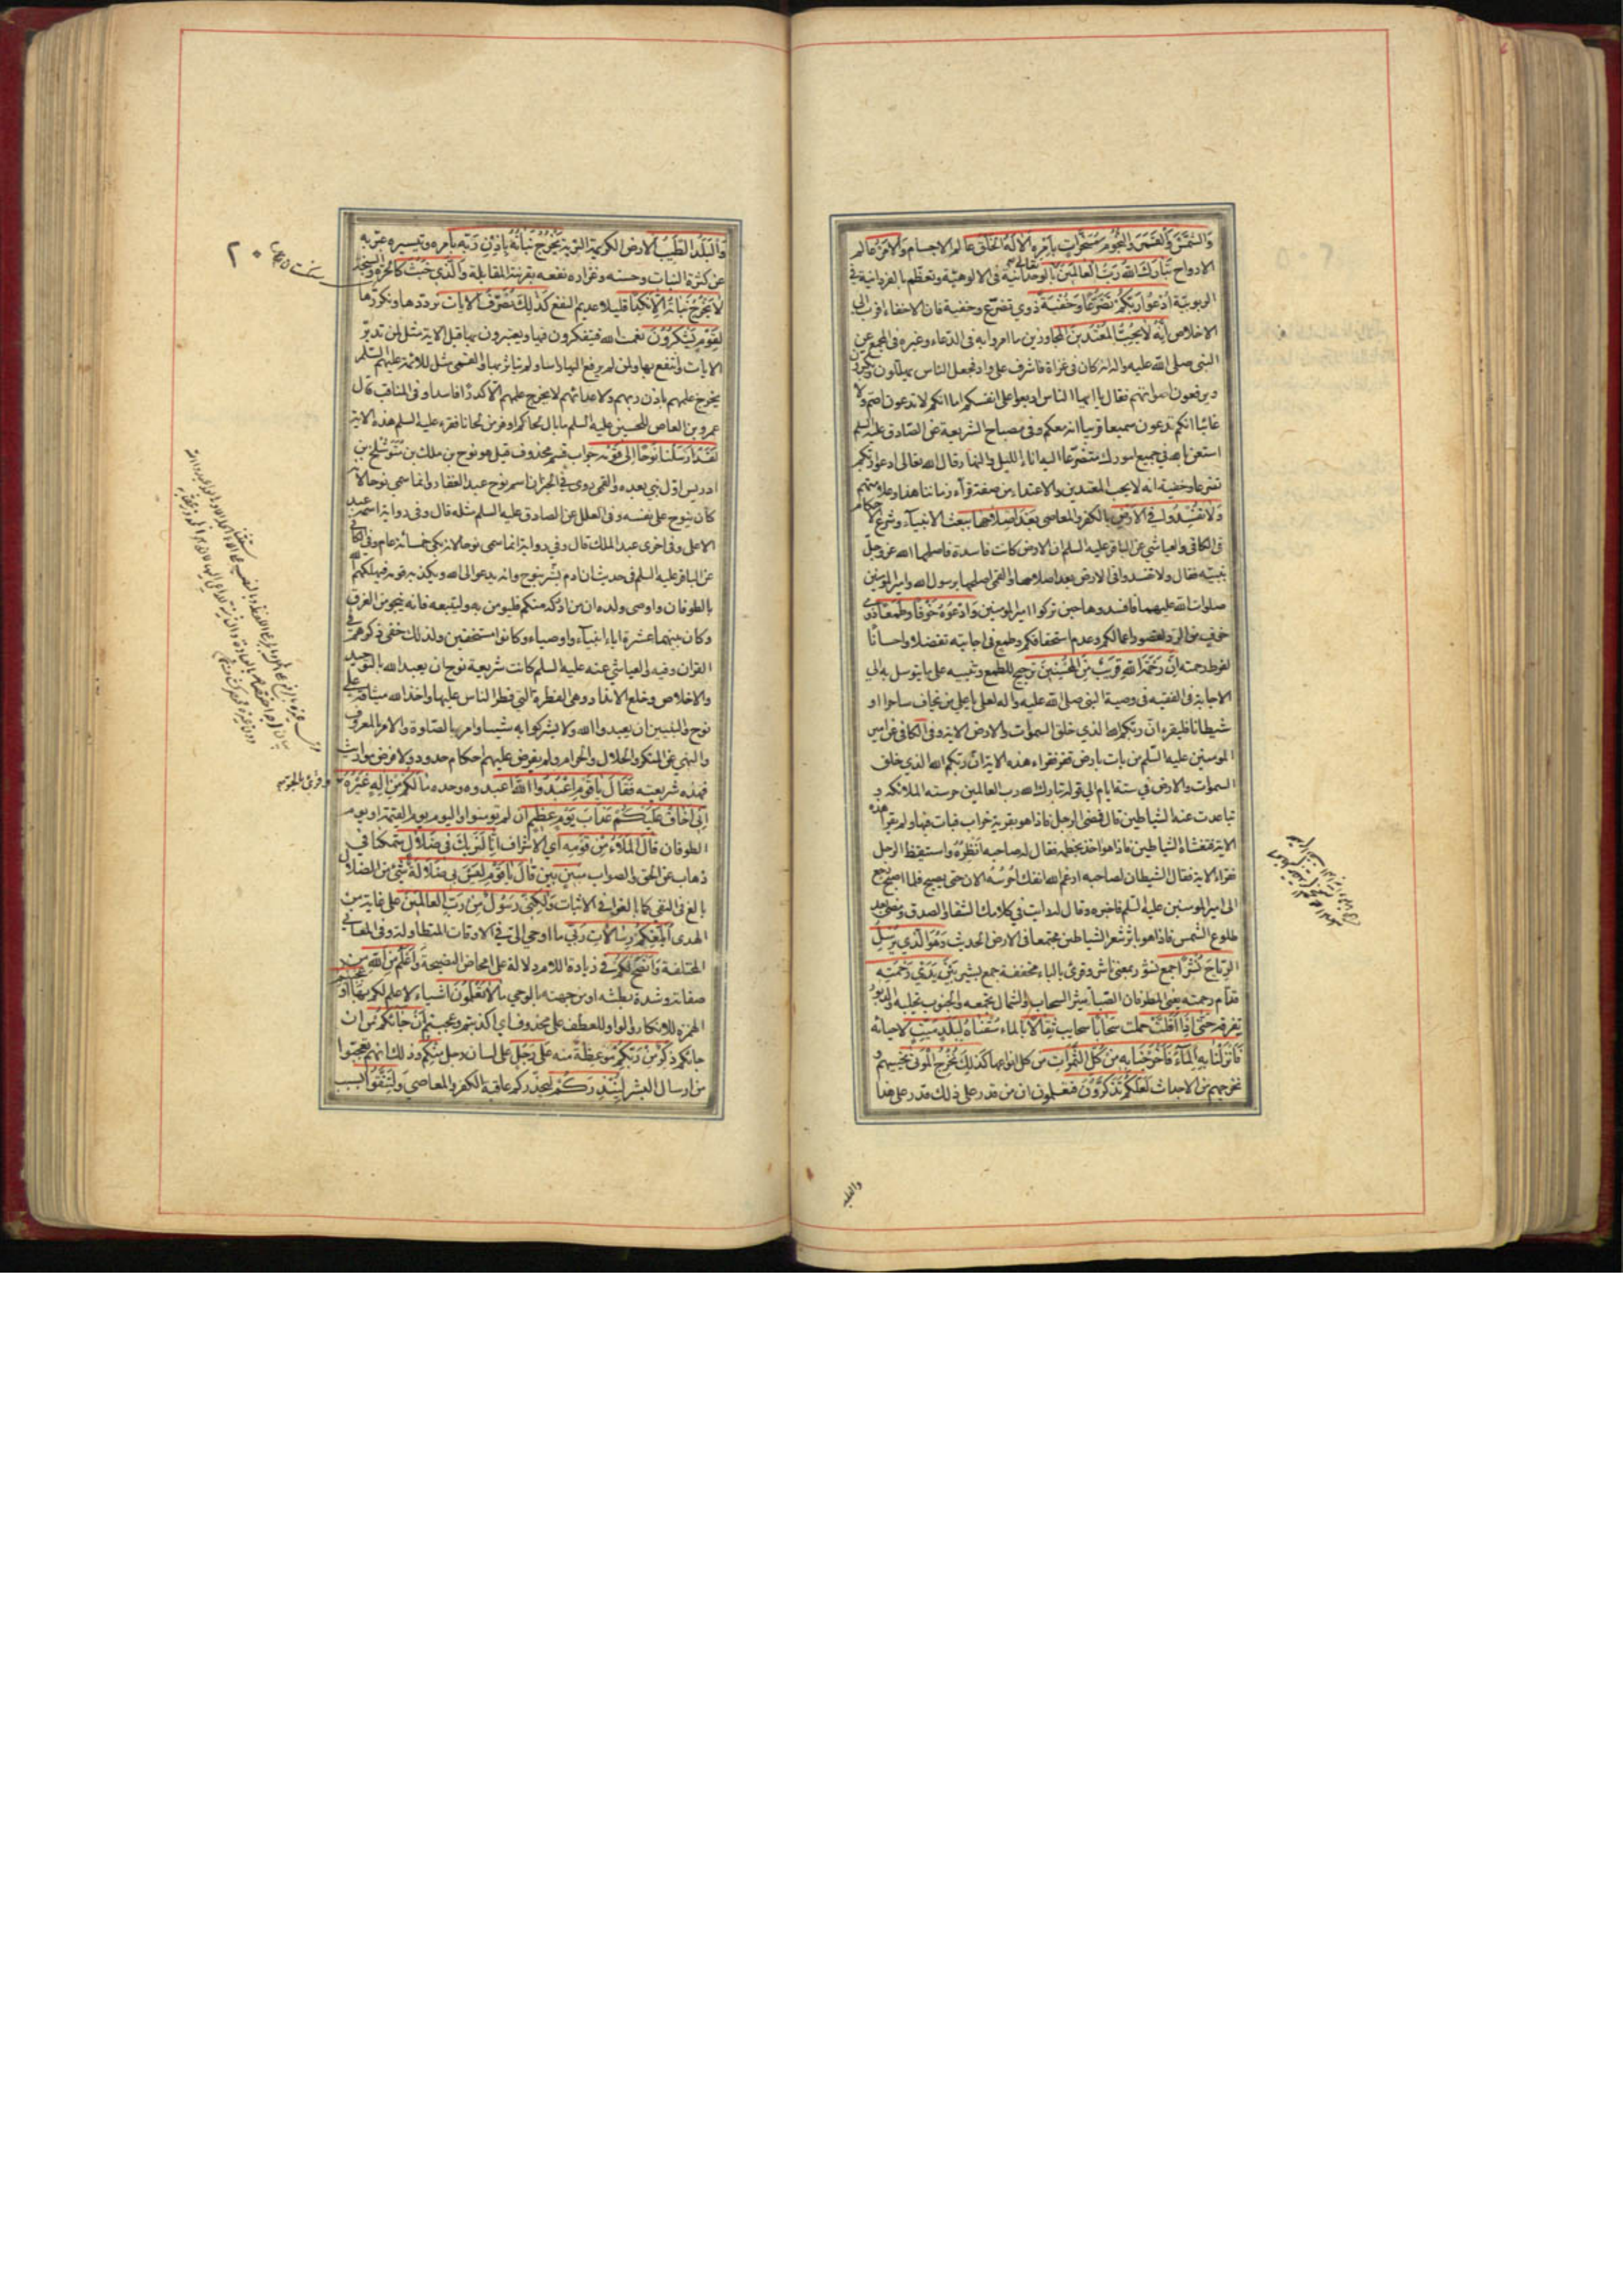 وَالشَّمْسَ وَالْقَمَرَ وَالنُّجُومَ مُسَخَّرَاتٍ بِأَمْرِهِ أَلَا لَهُ الْخَلْقُ عالم الاجسام وَالْأَمْرُ عالم
الارواح تَبَارَكَ اللَّهُ رَبُّ الْعَالَمِينَ تعالى بالوحدانية فى الالوهية وتعظم بالفردانية فى
الربوبية ادْعُوا رَبَّكُمْ تَضَرُّعًا وَخُفْيَةً ذوي تضرع وخفية فان الاخفاء اقرب الى
الاخلاص إِنَّهُ لَا يُحِبُّ الْمُعْتَدِينَ المجاوزين ما امروا به فى الدعاء وغيره فى المجمع عن
النبى صلى الله عليه واله انه كان فى غزاة فاشرف على واد فجعل الناس يهللون ويكبرون
ويرفعون اصواتهم فقال يا ايها الناس اربعوا على انفسكم اما انكم لا تدعون اصم ولا
غائبا انكم تدعون سميعا قريبا انه معكم وفى مصباح الشريعة عن الصادق عليه السلم
استعن بالله فى جميع امورك متضرعا اليه اناء الليل والنهار قال الله تعالى ادعوا ربكم
تضرعا وخفية انه لا يحب المعتدين والاعتداء من صفة قراء زماننا هذا وعلامتهم
وَلَا تُفْسِدُوا فِي الْأَرْضِ بالكفر والمعاصى بَعْدَ إِصْلَاحِهَا ببعث الانبياء وشرع الاحكام
فى الكافى والعياشى عن الباقر عليه السلم ان الارض كانت فاسدة فاصلحها الله عز وجل
بنبيه فقال ولا تفسدوا فى الارض بعد اصلاحها والقمى اصلحها برسول الله وامير المؤمنين
صلوات الله عليهما فافسدوها حين تركوا امير المؤمنين وَادْعُوهُ خَوْفًا وَطَمَعًا ذوى
خوف من الرد لقصور اعمالكم وعدم استحقاقكم وطمع فى اجابته تفضلا واحسانا
لفرط رحمته إِنَّ رَحْمَةَ اللَّهِ قَرِيبٌ مِنَ الْمُحْسِنِينَ ترجيح للطمع وتنبيه على ما يتوسل به الى
الاجابة فى الفقيه فى وصية النبى صلى الله عليه واله لعلى يا على من يخاف ساحرا او
شيطانا فليقرء ان ربكم الله الذى خلق السموات والارض الاية وفى الكافى عن امير
المؤمنين عليه السلم من بات بارض قفر فقراء هذه الاية ان ربكم الله الذى خلق
السموات والارض فى ستة ايام الى قوله تبارك الله رب العالمين حرسته الملائكة و
تباعدت عنه الشياطين قال فمضى الرجل فاذا هو بقرية خراب فبات فيها ولم يقرأ هذه
الاية فتغشاه الشياطين فاذا هو اخذ بخطمه فقال له صاحبه انظره واستيقظ الرجل
فقراء الاية فقال الشيطان لصاحبه ارغم الله انفك احرسه الان حتى يصبح فلما اصبح رجع
الى امير المؤمنين عليه السلم فاخبره وقال له رايت فى كلامك الشفاء والصدق ومضى بعد
طلوع الشمس فاذا هو باثر شعر الشياطين مجتمعا فى الارض الحديث وَهُوَ الَّذِي يُرْسِلُ
الرِّيَاحَ نُشْرًا جمع نشور بمعنى ناشر وقرئ بالباء مخففة جمع بشير بَيْنَ يَدَيْ رَحْمَتِهِ
قدام رحمته يعنى المطر فان الصبا يثير السحاب والشمال يجمعه والجنوب تحلبه والدبور
تفرقه حَتَّى إِذَا أَقَلَّتْ حملت سَحَابًا سحايب ثِقَالًا بالماء سُقْنَاهُ لِبَلَدٍ مَيِّتٍ لاحيائه
فَأَنْزَلْنَا بِهِ الْمَاءَ فَأَخْرَجْنَا بِهِ مِنْ كُلِّ الثَّمَرَاتِ من كل انواعها كَذَلِكَ نُخْرِجُ الْمَوْتَى نحييهم و
نخرجهم من الاجداث لَعَلَّكُمْ تَذَكَّرُونَ فتعلمون ان من قدر على ذلك قدر على هذا
وَالْبَلَدُ الطَّيِّبُ الارض الكريمة التربة يَخْرُجُ نَبَاتُهُ بِإِذْنِ رَبِّهِ بامره وتيسيره عبر به
عن كثرة النبات وحسنه وغزارة نفعه بقرينة المقابلة وَالَّذِي خَبُثَ كالحرة والسبخة
لَا يَخْرُجُ نباته إِلَّا نَكِدًا قليلا عديم النفع كَذَلِكَ نُصَرِّفُ الْآيَاتِ نرددها ونكررها
لِقَوْمٍ يَشْكُرُونَ نعمت الله فيتفكرون فيها ويعتبرون بها قيل الاية مثل لمن تدبر
الايات وانتفع بها ولمن لم يرفع اليها راسا ولم يتاثر بها والقمى مثل للائمة عليهم السلم
يخرج علمهم باذن ربهم ولاعدائهم لا يخرج علمهم الا كدرا فاسدا وفى المناقب قال
عمرو بن العاص للحسين عليه السلم ما بال لحاكم اوفر من لحانا فقرء عليه السلم هذه الاية
لَقَدْ أَرْسَلْنَا نُوحًا إِلَى قَوْمِهِ جواب قسم محذوف قيل هو نوح بن ملك بن متوشلخ بن
ادريس اول نبى بعده والقمى روى فى الخبر ان اسم نوح عبد الغفار وانما سمى نوحا لانه
كان ينوح على نفسه وفى العلل عن الصادق عليه السلم مثله قال وفى رواية اسمه عبد
الاعلى وفى اخرى عبد الملك قال وفى رواية انما سمى نوحا لانه بكى خمسمائة عام وفى الكافى
عن الباقر عليه السلم فى حديث ان ادم بشر بنوح وانه يدعو الى الله ويكذبه قومه فيهلكهم الله
بالطوفان واوصى ولده ان من ادركه منكم فليؤمن به وليتبعه فانه ينجو من الغرق
وكان بينهما عشرة اباء انبياء واوصياء وكانوا مستخفين ولذلك خفى ذكرهم فى
القران وفيه والعياشى عنه عليه السلم كانت شريعة نوح ان يعبد الله بالتوحيد
والاخلاص وخلع الانداد وهى الفطرة التى فطر الناس عليها واخذ الله ميثاقه على
نوح والنبيين ان يعبدوا الله ولا يشركوا به شيئا وامر بالصلوة والامر بالمعروف
والنهى عن المنكر والحلال والحرام ولم يفرض عليهم احكام حدود ولا فرض مواريث
فهذه شريعته فَقَالَ يَا قَوْمِ اعْبُدُوا اللَّهَ اعبدوه وحده مَا لَكُمْ مِنْ إِلَهٍ غَيْرُهُ
إِنِّي أَخَافُ عَلَيْكُمْ عَذَابَ يَوْمٍ عَظِيمٍ ان لم تؤمنوا واليوم يوم القيمة او يوم
الطوفان قَالَ الْمَلَأُ مِنْ قَوْمِهِ اى الاشراف إِنَّا لَنَرَاكَ فِي ضَلَالٍ متمكنا فى
ذهاب عن الحق والصواب مُبِينٍ بين قَالَ يَا قَوْمِ لَيْسَ بِي ضَلَالَةٌ شئ من الضلال
بالغ فى النفى كما بالغوا فى الاثبات وَلَكِنِّي رَسُولٌ مِنْ رَبِّ الْعَالَمِينَ على غاية من
الهدى أُبَلِّغُكُمْ رِسَالَاتِ رَبِّي ما اوحى الى فى الاوقات المتطاولة وفى المعانى
المختلفة وَأَنْصَحُ لَكُمْ فى زيادة اللام دلالة على امحاض النصيحة وَأَعْلَمُ مِنَ اللَّهِ من
صفاته وشدة بطشه او من جهته بالوحى مَا لَا تَعْلَمُونَ اشياء لا علم لكم بها أَوَعَجِبْتُمْ
الهمزة للانكار والواو للعطف على محذوف اى اكذبتم وعجبتم أَنْ جَاءَكُمْ من ان
جائكم ذِكْرٌ مِنْ رَبِّكُمْ موعظة منه عَلَى رَجُلٍ على لسان رجل مِنْكُمْ وذلك انهم تعجبوا
من ارسال البشر لِيُنْذِرَكُمْ ليحذركم عاقبة الكفر والمعاصى وَلِتَتَّقُوا بسبب
وقرئ بالجر